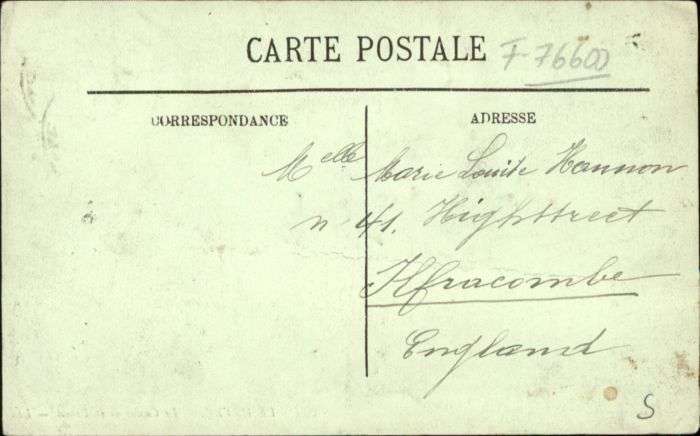 CARTE POSTALE
F-76600
CORRESPONDANCE
ADRESSE
Melle Marie Louise Hannon
n. 41. Highstreet
Ilfracombe
England
S